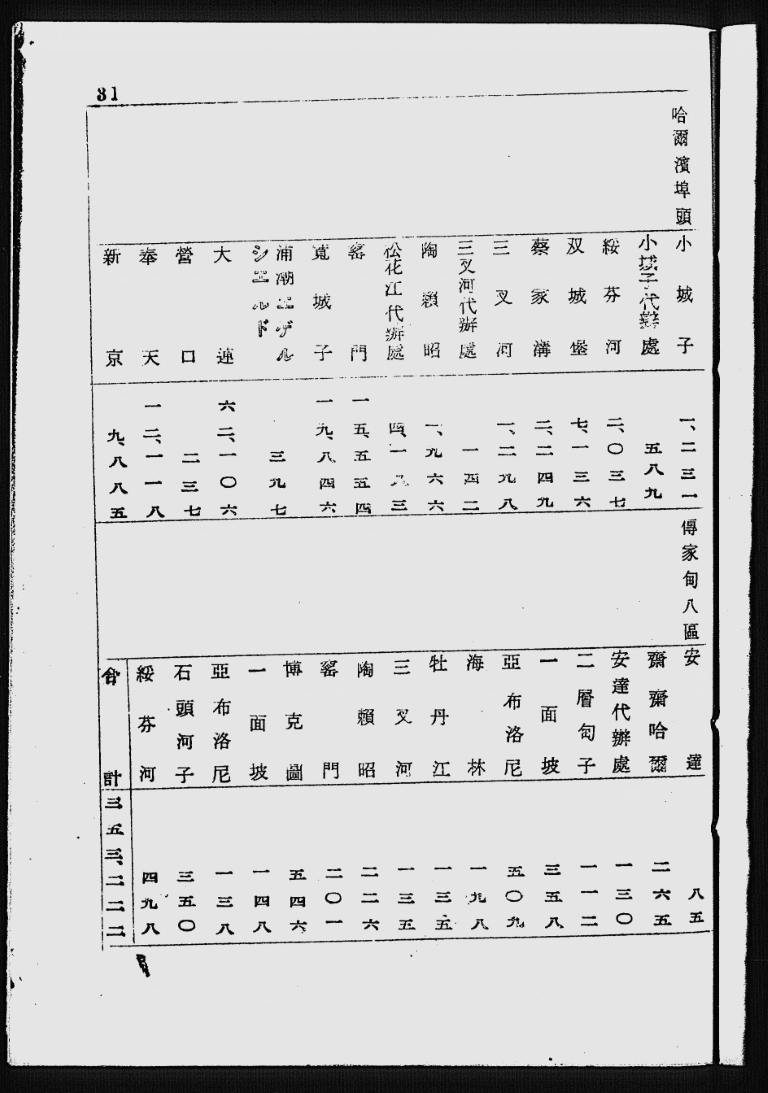 31
哈爾濱埠頭
小城子 一、二三一
小城子代辦處 五八九
綏芬河 二、〇三七
双城堡 七、一三六
蔡家溝 二、二四九
三叉河 一、二九八
三叉河代辦處 一四二
陶賴昭 一、九六六
松花江代辦處 四、一八三
窰門 一五、五五四
寬城子 一九、八四六
浦潮エゲルシエルド 三九七
大連 六二、一〇六
營口 二三七
奉天 一二、一一八
新京 九、八八五
傅家甸八區
安達 八五
齋齋哈爾 二六五
安達代辦處 一三〇
二層甸子 一一二
一面坡 三五八
亞布洛尼 五〇九
海林 一九八
牡丹江 一三五
三叉河 一三五
陶賴昭 二二六
窰門 二〇一
博克圖 五四六
一面坡 一四八
亞布洛尼 一三八
石頭河子 三五〇
綏芬河 四九八
合計 三五三、二二二